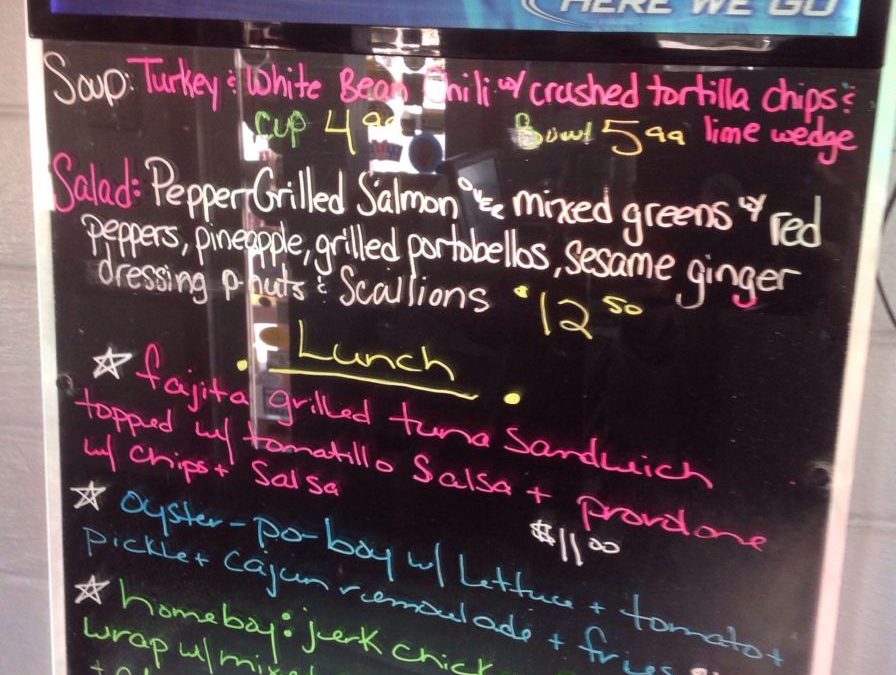 HERE WE GO
Soup: Turkey & White Bean Chili w/ crushed tortilla chips &
cup 4 99 Bowl 5 99 lime wedge
Salad: Pepper Grilled Salmon over mixed greens w/ red
peppers, pineapple, grilled portobellos, sesame ginger
dressing p-nuts & Scallions $12 50
• Lunch •
☆ fajita grilled tuna sandwich
topped w/ tomatillo Salsa + provolone
w/ chips + Salsa $11 00
☆ oyster-po-boy w/ lettuce + tomato +
pickle + cajun remoulade + fries
☆ homeboy: jerk chick
wrap w/ mixe